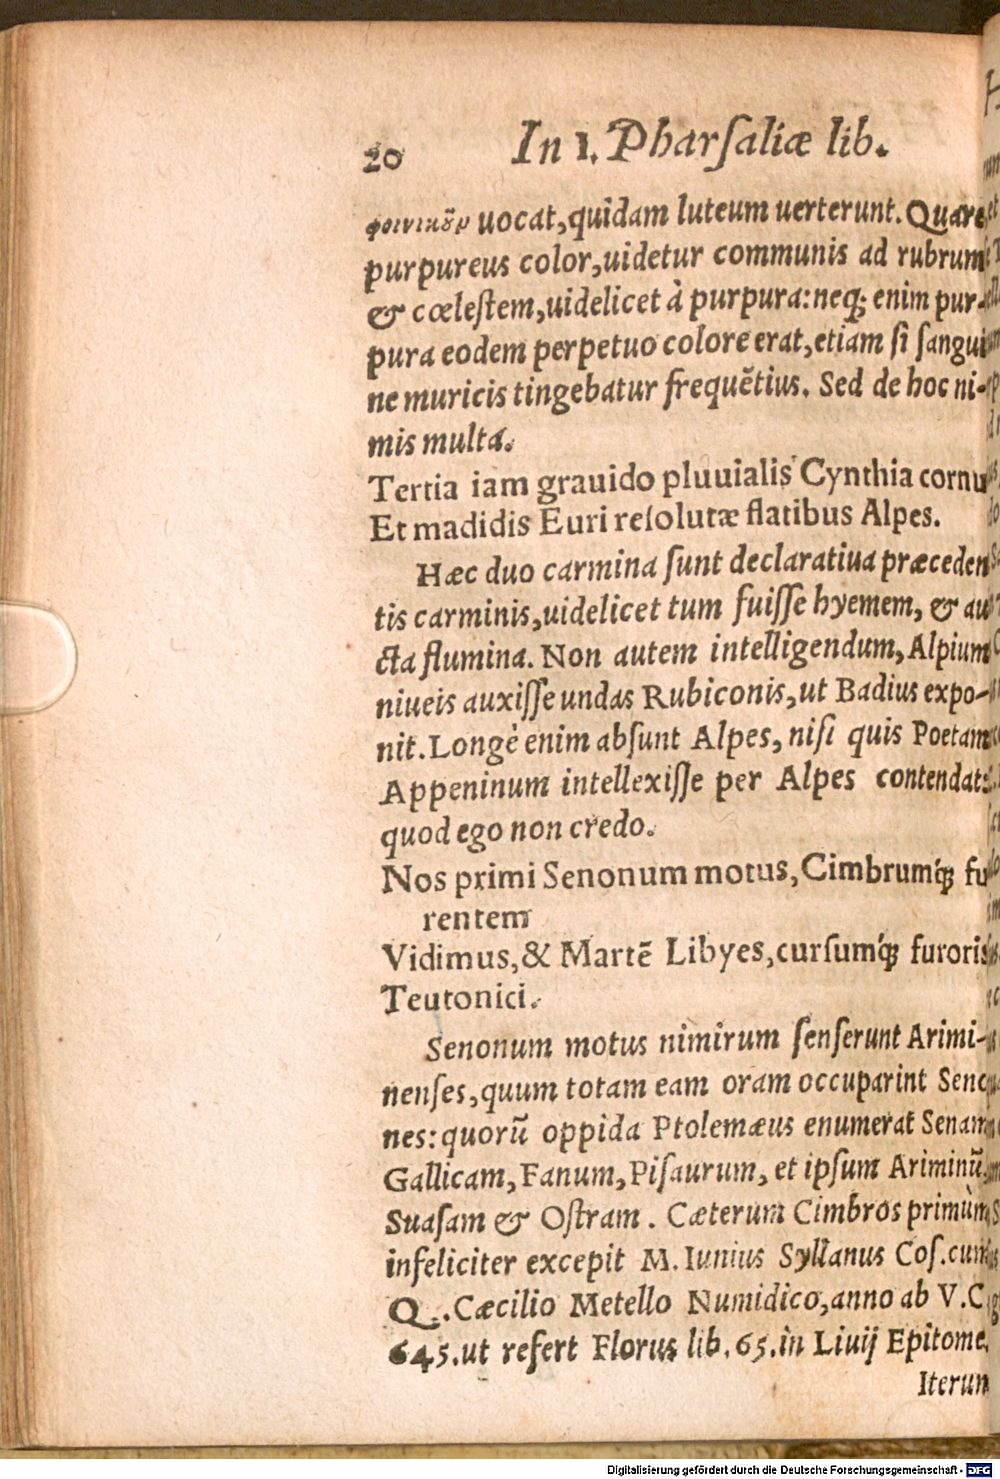 20 In 1. Pharſaliæ lib.
uocat, quidam luteum uerterunt. Quare
purpureus color, uidetur communis ad rubrum
& cœleſtem, uidelicet à purpura: neq; enim pur-
pura eodem perpetuo colore erat, etiam ſi ſangui
ne muricis tingebatur frequẽtius. Sed de hoc ni-
mis multa.
Tertia iam grauido pluuialis Cynthia cornu
Et madidis Euri reſolutæ flatibus Alpes.
Hæc duo carmina ſunt declaratiua præceden
tis carminis, uidelicet tum fuiſſe hyemem, & au
cta flumina. Non autem intelligendum, Alpium
niueis auxiſſe undas Rubiconis, ut Badius expo-
nit. Longè enim abſunt Alpes, niſi quis Poetam
Appeninum intellexiſſe per Alpes contendat:
quod ego non credo.
Nos primi Senonum motus, Cimbrumq́; fu
rentem
Vidimus, & Martẽ Libyes, curſumq́; furoris
Teutonici.
Senonum motus nimirum ſenſerunt Arimi-
nenſes, quum totam eam oram occuparint Seno
nes: quorũ oppida Ptolemæus enumerat Senam
Gallicam, Fanum, Piſaurum, et ipſum Ariminũ,
Suaſam & Oſtram. Cæterum Cimbros primùm
infeliciter excepit M. Iunius Syllanus Coſ. cum
Q. Cæcilio Metello Numidico, anno ab V. C
645. ut refert Florus lib. 65. in Liuij Epitome.
Iterum
Digitalisierung gefördert durch die Deutsche Forschungsgemeinschaft - DFG